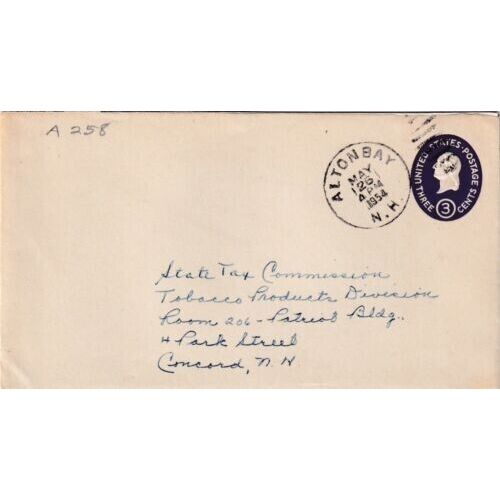 A 258
ALTON BAY
MAY
26
4 PM
1954
N. H.
UNITED STATES POSTAGE
THREE 3 CENTS
State Tax Commission
Tobacco Products Division
Room 206 - Patriot Bldg.
4 Park Street
Concord, N. H